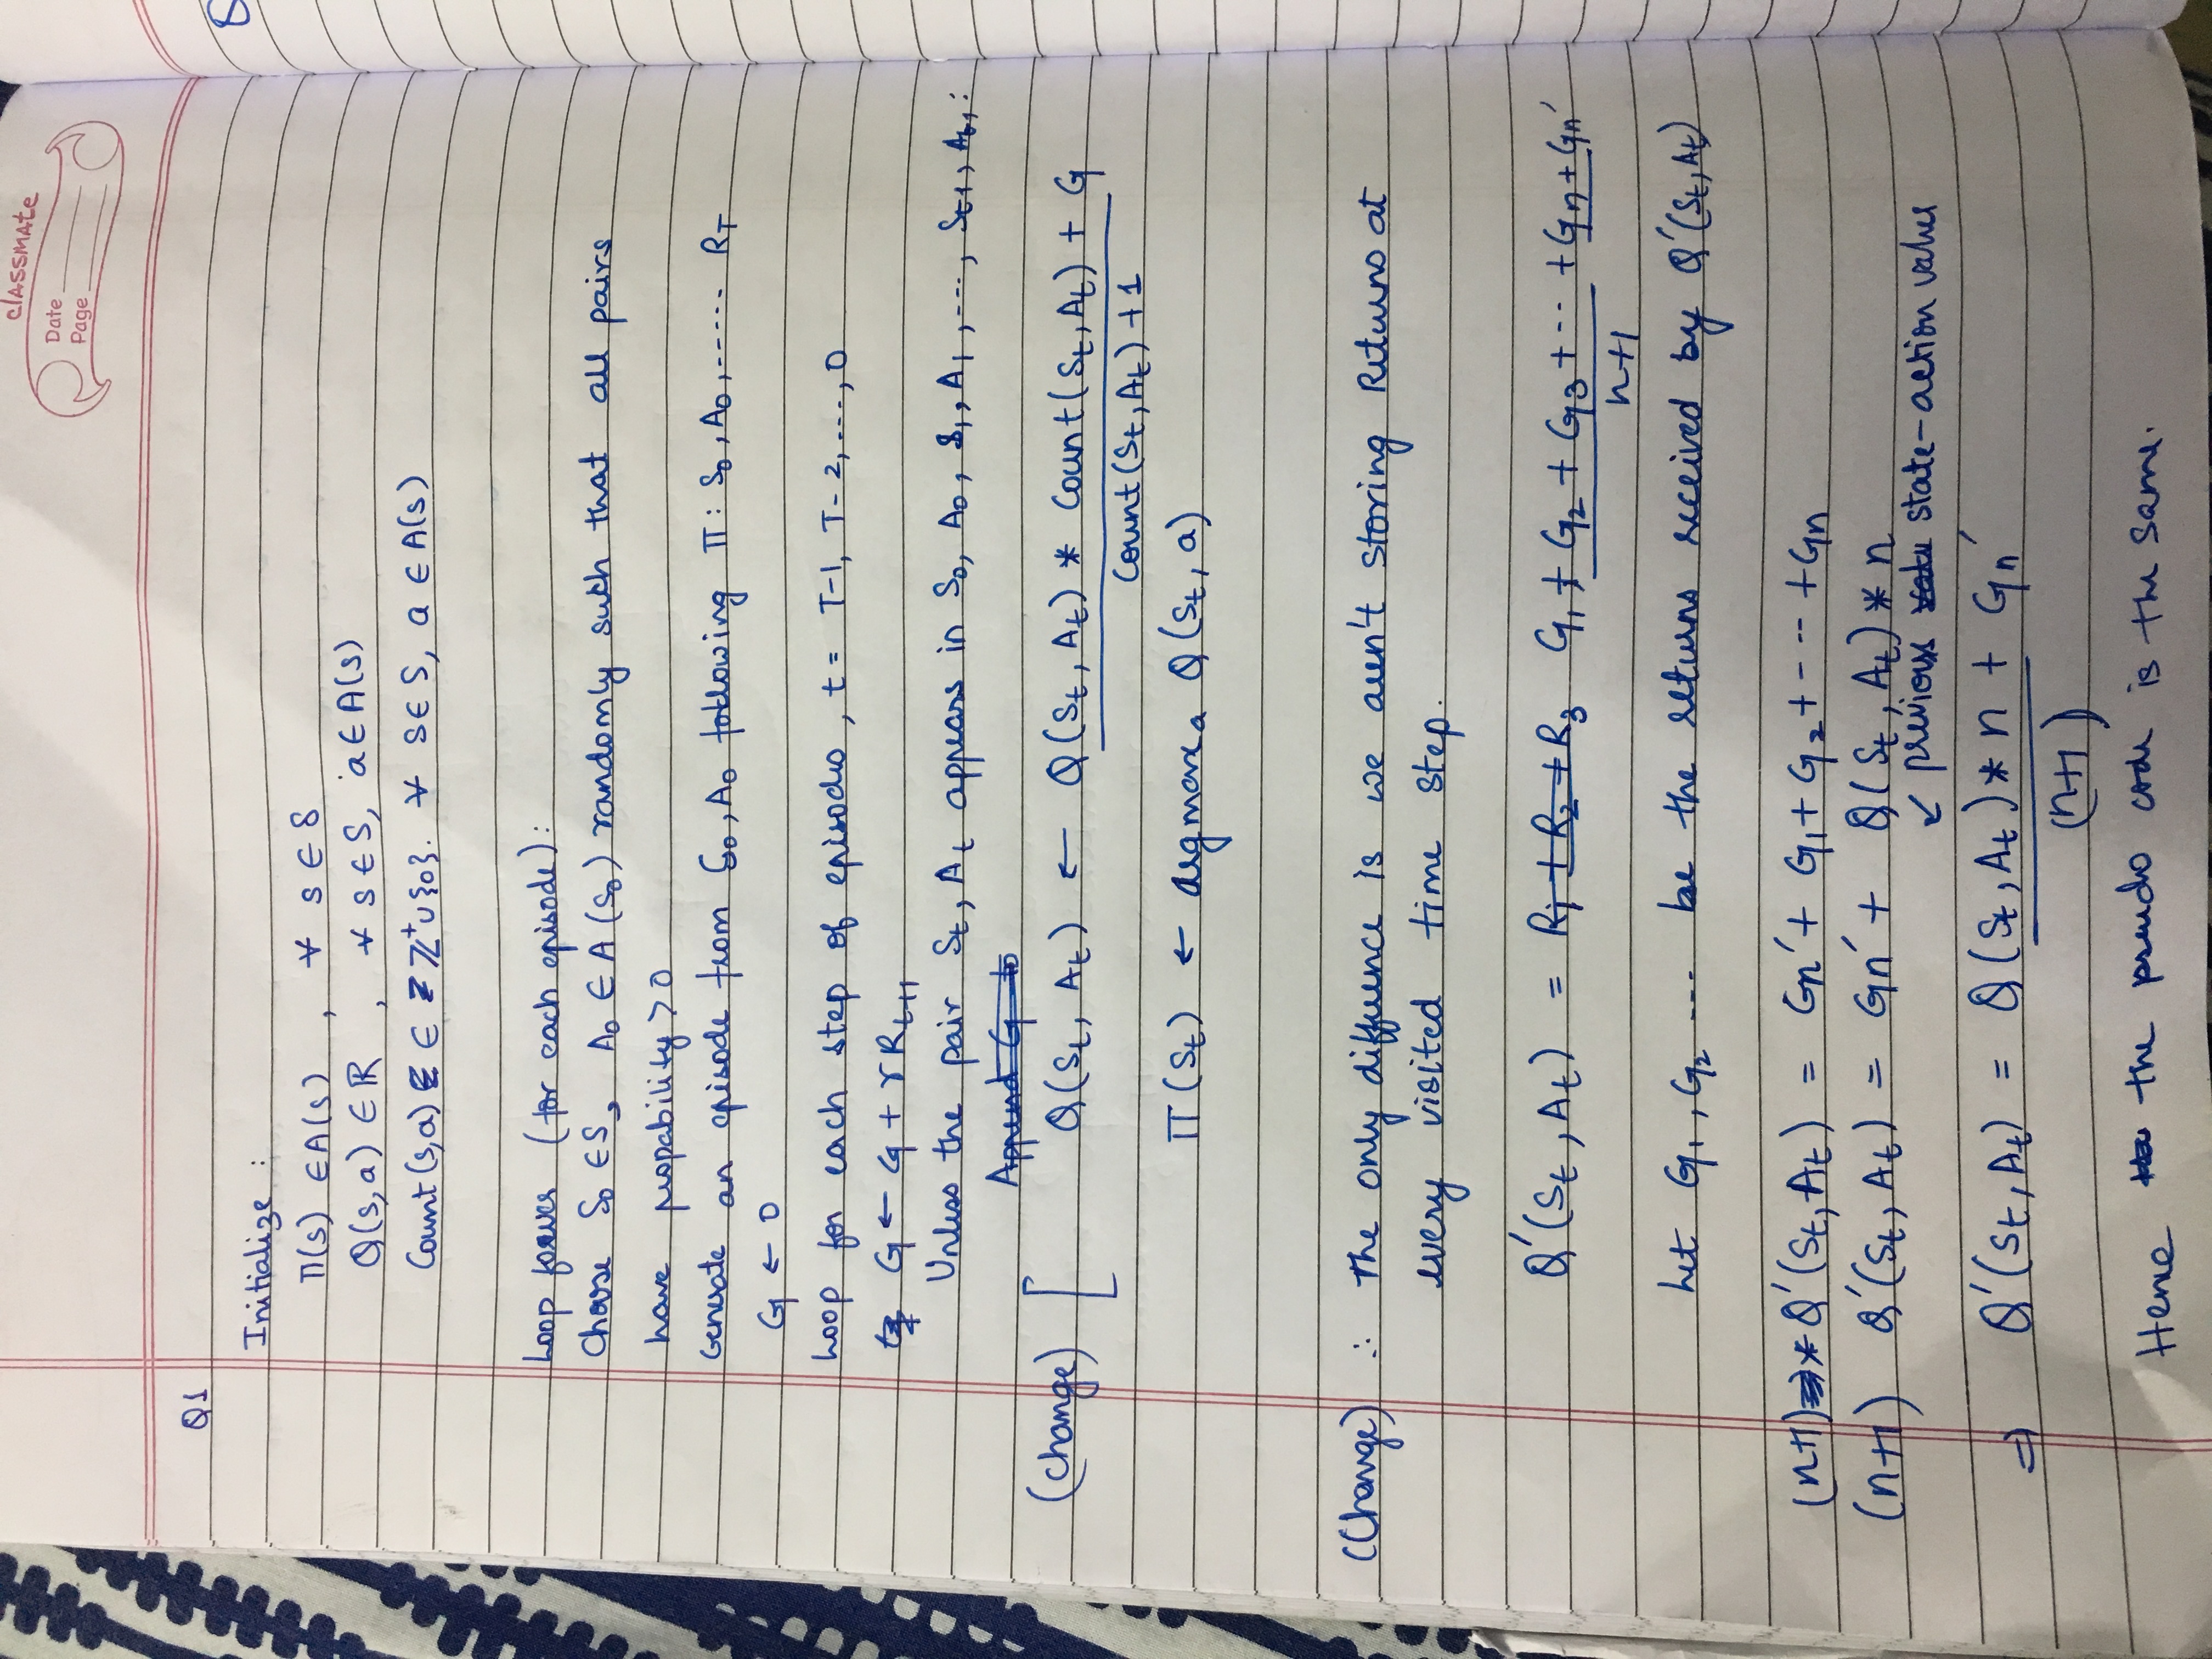 classmate
Date
Page
Q1
Initialize :
Π(s) ∈ A(s) , ∀ s ∈ S
Q(s,a) ∈ ℝ , ∀ s ∈ S, a ∈ A(s)
Count(s,a) ∈ ℤ⁺∪{0}. ∀ s ∈ S, a ∈ A(s)
Loop forever (for each episode):
Choose S₀ ∈ S, A₀ ∈ A(S₀) randomly such that all pairs
have propability > 0
Generate an episode from S₀, A₀ following Π : S₀, A₀, ------ R_T
G ← 0
Loop for each step of episode, t = T-1, T-2, ..., 0
G ← G + γR_{t+1}
Unless the pair S_t, A_t appears in S₀, A₀, S₁, A₁, ---, S_{t-1}, A_{t-1} :
Append G to
(change) [ Q(S_t, A_t) ← Q(S_t, A_t) * Count(S_t, A_t) + G
Count(S_t, A_t) + 1
Π(S_t) ← argmax_a Q(S_t, a)
(Change) ∴ The only difference is we aren't storing Returns at
every visited time step.
Q'(S_t, A_t) = R₁ + R₂ + R₃ G₁ + G₂ + G₃ + -- + G_n + G_n'
n+1
Let G₁, G₂ --- be the returns received by Q'(S_t, A_t)
(n+1) * Q'(S_t, A_t) = G_n' + G₁ + G₂ + - -- + G_n
(n+1) Q'(S_t, A_t) = G_n' + Q(S_t, A_t) * n
↙ previous state-action value
⇒ Q'(S_t, A_t) = Q(S_t, A_t) * n + G_n'
(n+1)
Hence the pseudo code is the same.